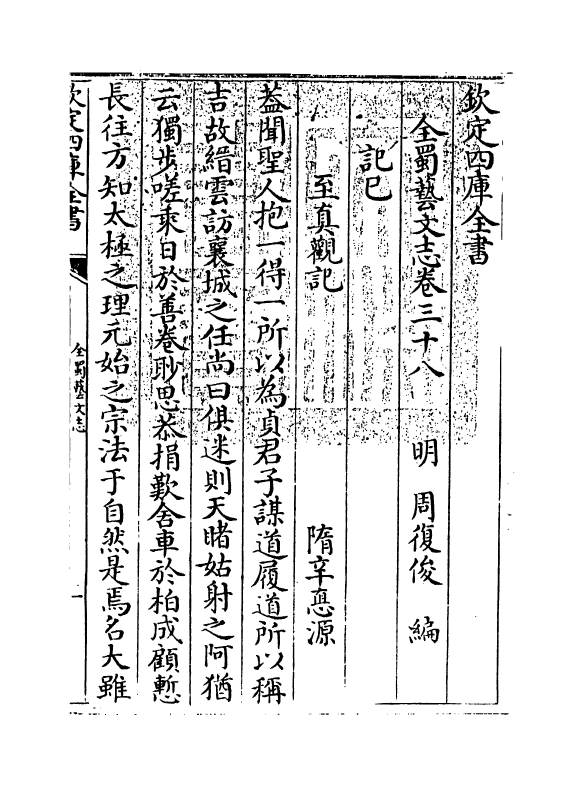 欽定四庫全書
全蜀藝文志卷三十八　明　周復俊　編
記巳
至真觀記　隋辛悳源
葢聞聖人抱一得一所以為貞君子謀道履道所以稱
吉故縉雲訪襄城之任尚曰俱迷則天睹姑射之阿猶
云獨步嗟乘日於善卷眇思恭捐歎舍車於柏成顧慙
長往方知太極之理元始之宗法于自然是焉名大雖
欽定四庫全書
全蜀藝文志
一